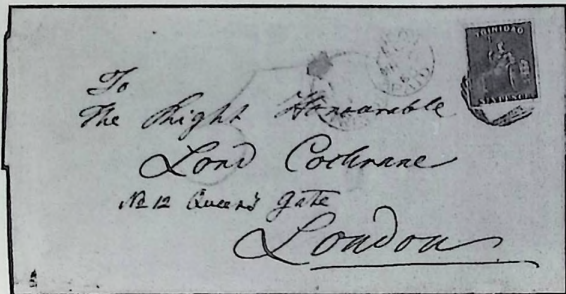 TRINIDAD
SIXPENCE
To
The Right Honourable
Lord Cochrane
No 12 Queens gate
London